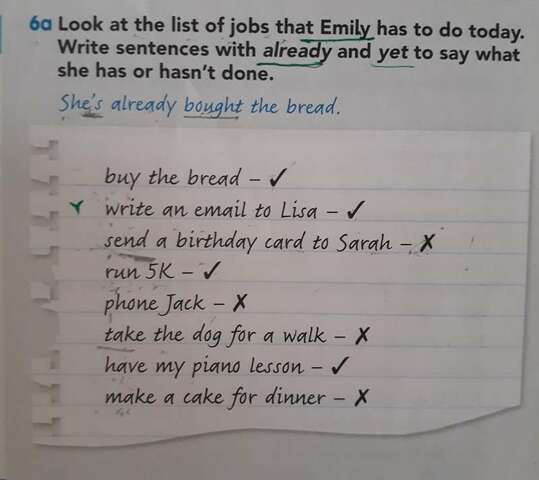 6a Look at the list of jobs that Emily has to do today.
Write sentences with already and yet to say what
she has or hasn't done.
She's already bought the bread.
buy the bread – ✓
write an email to Lisa – ✓
send a birthday card to Sarah – ✗
run 5K – ✓
phone Jack – ✗
take the dog for a walk – ✗
have my piano lesson – ✓
make a cake for dinner – ✗